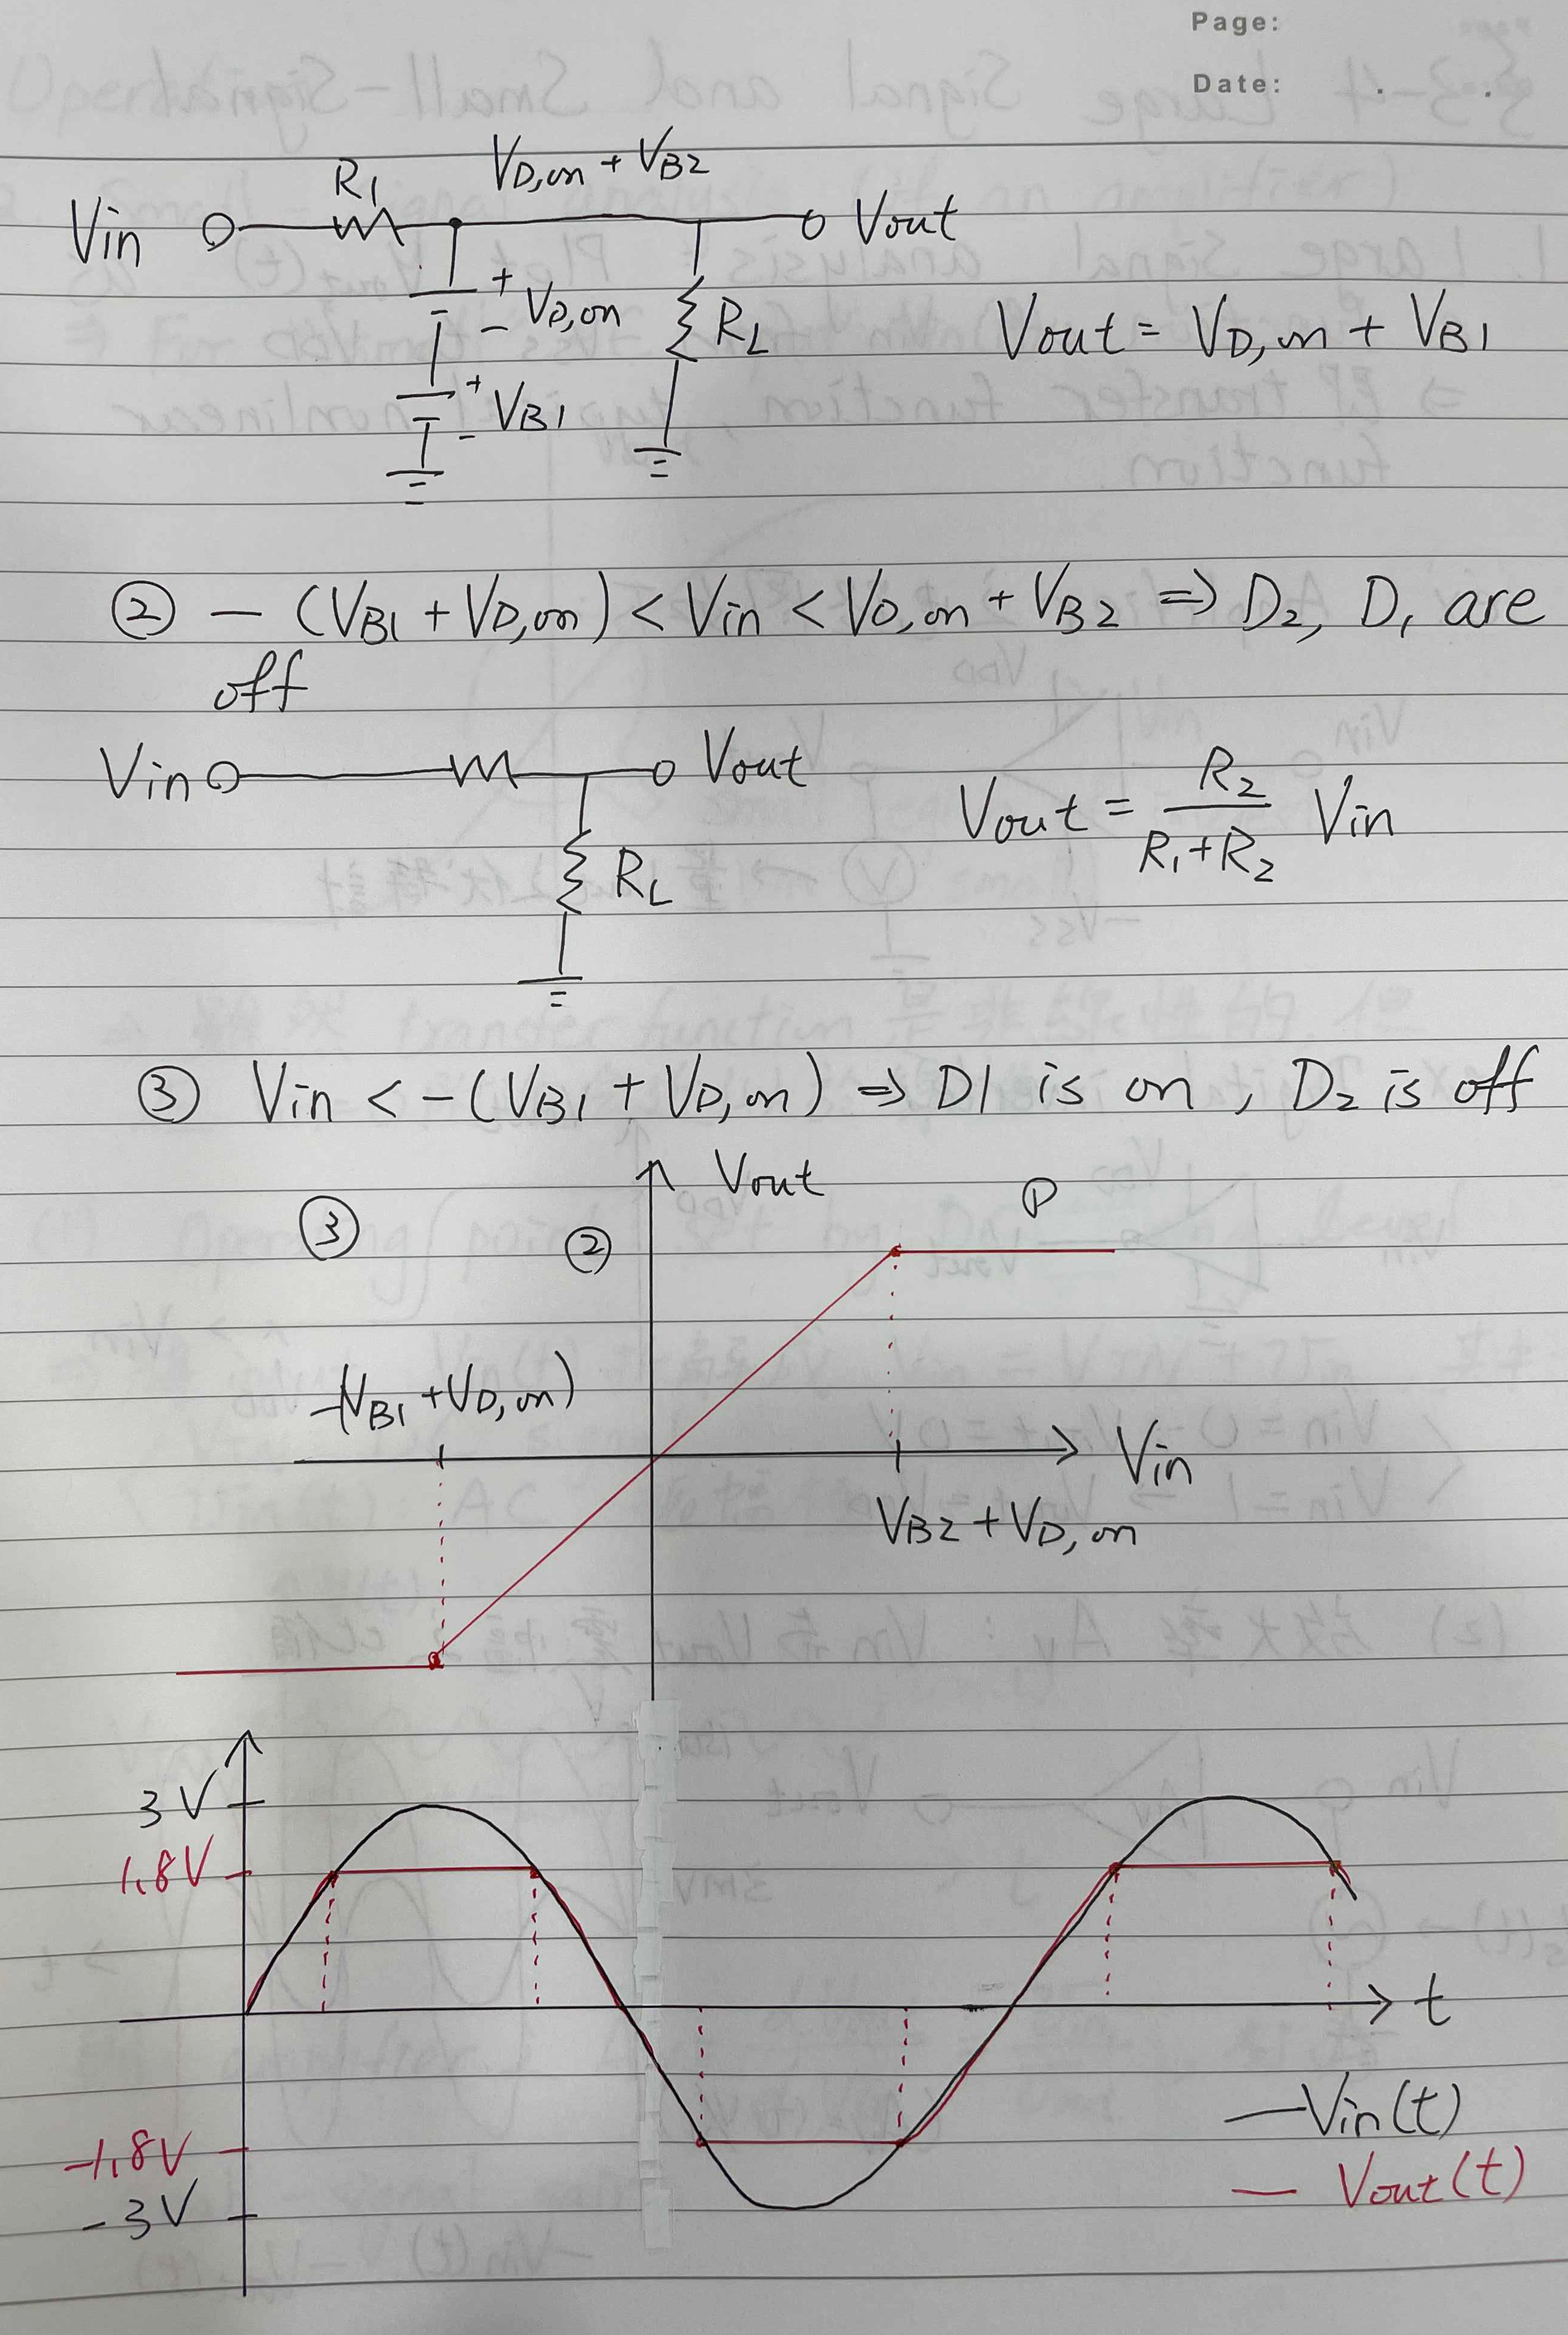 Page:
Date: . .
R1 VD,on + VB2
Vin Vout
+ VD,on -
RL
Vout = VD,on + VB1
+ VB1 -
② - (VB1 + VD,on) < Vin < VD,on + VB2 ⇒ D2, D1 are
off
Vin Vout
Vout = R2 / R1+R2 Vin
RL
③ Vin < -(VB1 + VD,on) ⇒ D1 is on, D2 is off
Vout
③ ② P
-(VB1 + VD,on)
Vin
VB2 + VD,on
3V
1.8V
t
-1.8V
-3V
— Vin(t)
— Vout(t)